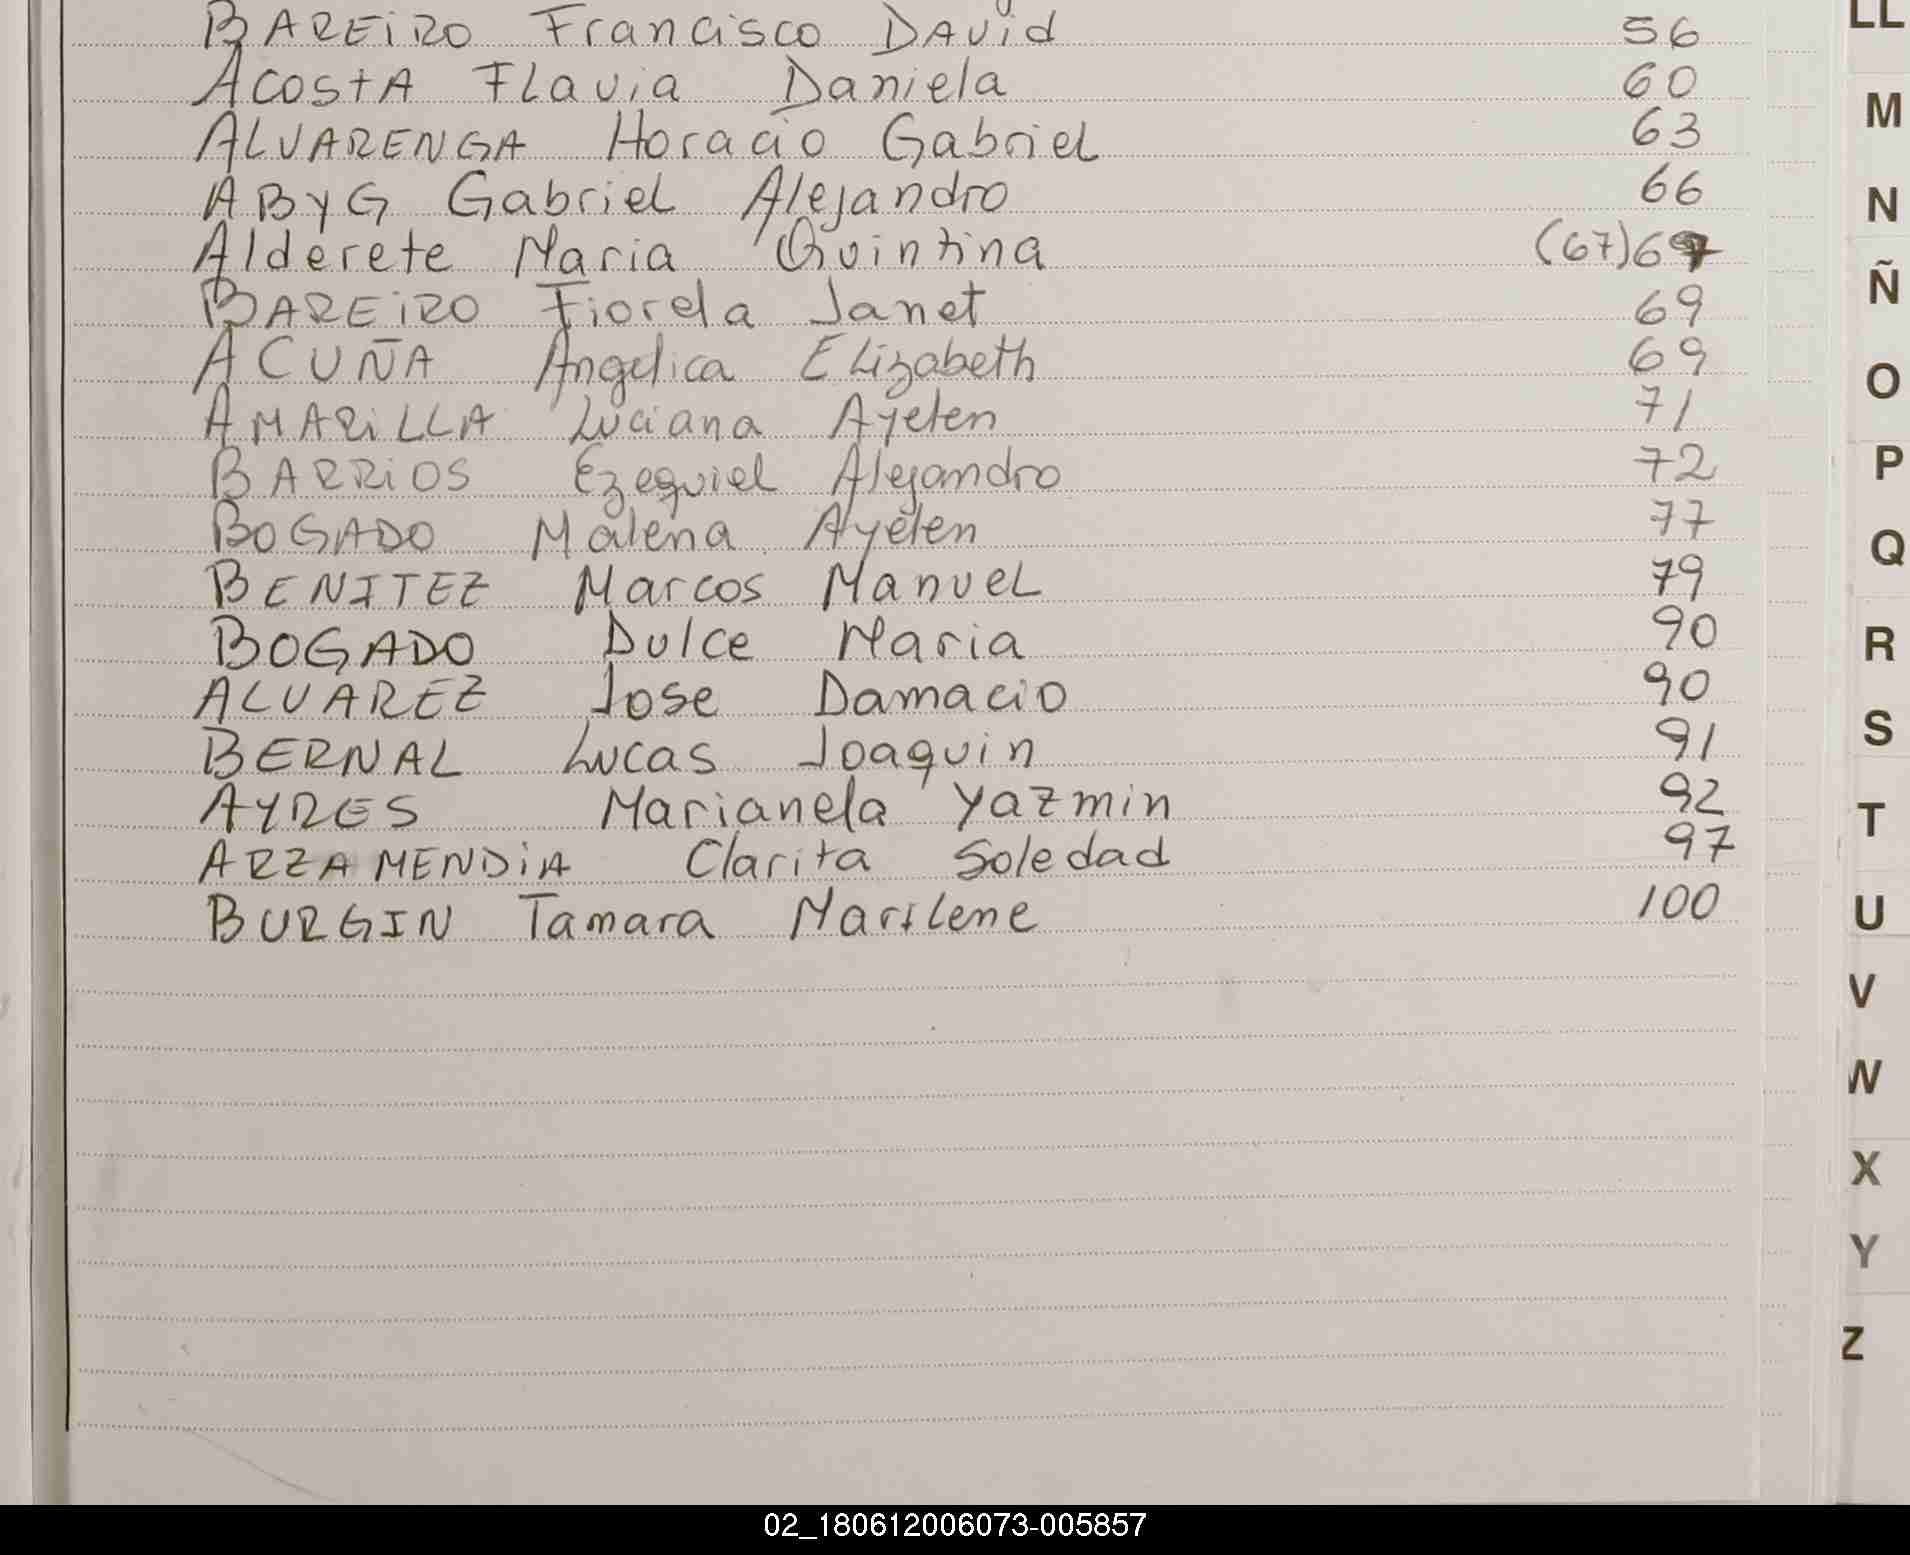 BAREIRO Francisco DAVID 56
ACOSTA FLavia Daniela 60
ALVARENGA Horacio Gabriel 63
AByG Gabriel Alejandro 66
Alderete Maria Quintina (67)67
BAREIRO Fiorela Janet 69
ACUÑA Angelica ELizabeth 69
AMARILLA Luciana Ayelen 71
BARRIOS Ezequiel Alejandro 72
BOGADO Malena Ayelen 77
BENITEZ Marcos Manuel 79
BOGADO Dulce Maria 90
ALVAREZ Jose Damacio 90
BERNAL Lucas Joaquin 91
AYRES Marianela Yazmin 92
ARZAMENDIA Clarita Soledad 97
BURGIN Tamara Marilene 100
LL
M
N
Ñ
O
P
Q
R
S
T
U
V
W
X
Y
Z
02_180612006073-005857